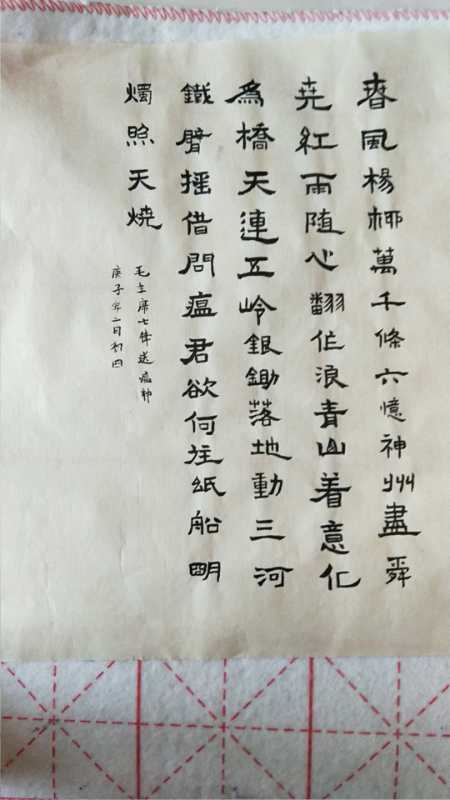 春風楊柳萬千條六憶神州盡舜
尭紅雨随心翻作浪青山着意化
為橋天連五岭銀鋤落地動三河
鐵臂摇借問瘟君欲何往紙船明
燭照天燒
毛主席七律送瘟神
庚子年二月初四